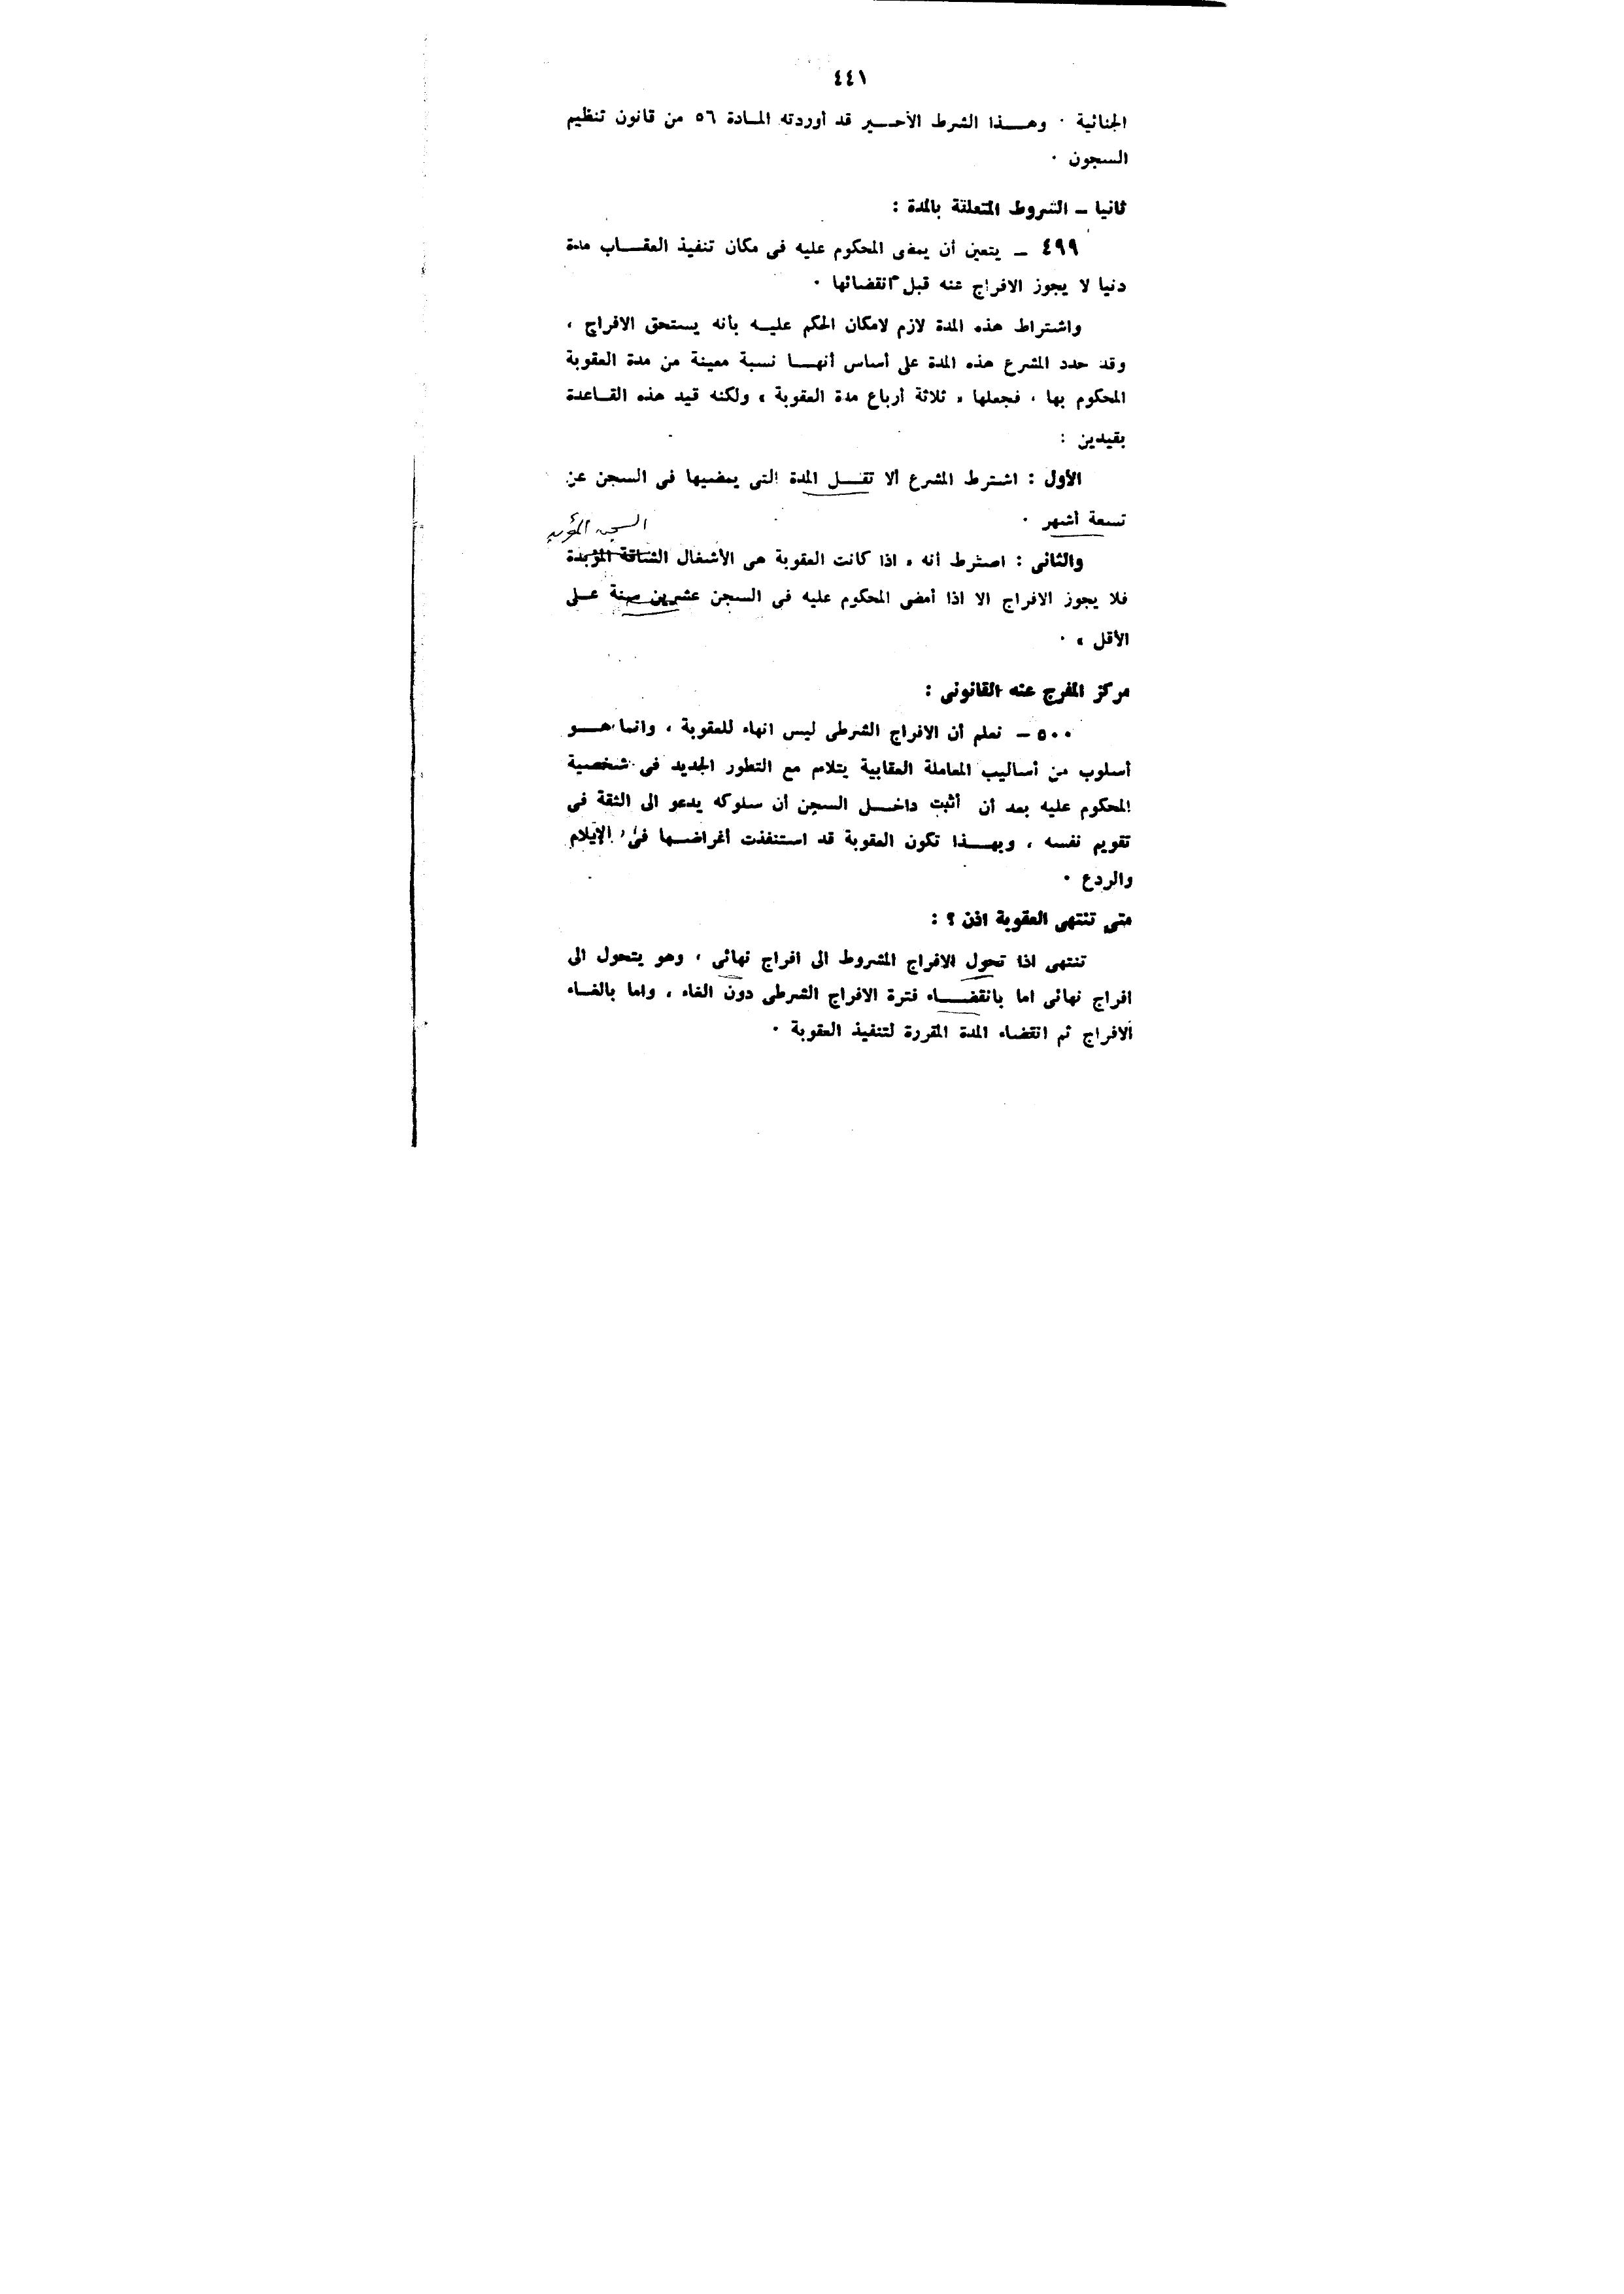 ٤٤١
الجنائية . وهـــذا الشرط الأخـــير قد أوردته المـادة ٥٦ من قانون تنظيم
السجون .
ثانيا ــ الشروط المتعلقة بالمدة :
٤٩٩ ــ يتعين أن يمضى المحكوم عليه فى مكان تنفيذ العقـــاب مدة
دنيا لا يجوز الافراج عنه قبل انقضائها .
واشتراط هذه المدة لازم لامكان الحكم عليــه بأنه يستحق الافراج ،
وقد حدد المشرع هذه المدة على أساس أنهـــا نسبة معينة من مدة العقوبة
المحكوم بها ، فجعلها « ثلاثة أرباع مدة العقوبة » ولكنه قيد هذه القـاعدة
بقيدين :
الأول : اشترط المشرع ألا تقـــل المدة التى يمضيها فى السجن عن
تسعة أشهر .
السجن المؤبد
والثانى : اشترط أنه « اذا كانت العقوبة هى الأشغال الشاقة المؤبدة
فلا يجوز الافراج الا اذا أمضى المحكوم عليه فى السجن عشرين سنة عـلى
الأقل » .
مركز المفرج عنه القانونى :
٥٠٠ ــ نعلم أن الافراج الشرطى ليس انهاء للعقوبة ، وانما هـــو
أسلوب من أساليب المعاملة العقابية يتلاءم مع التطور الجديد فى شخصية
المحكوم عليه بعد أن أثبت داخـــل السجن أن سلوكه يدعو الى الثقة فى
تقويم نفسه ، وبهـــذا تكون العقوبة قد استنفذت أغراضـــها فى الإيلام
والردع .
متى تنتهى العقوبة اذن ؟ :
تنتهى اذا تحول الافراج المشروط الى افراج نهائى ، وهو يتحول الى
افراج نهائى اما بانقضـــاء فترة الافراج الشرطى دون الغاء ، واما بالغـاء
الافراج ثم انقضاء المدة المقررة لتنفيذ العقوبة .